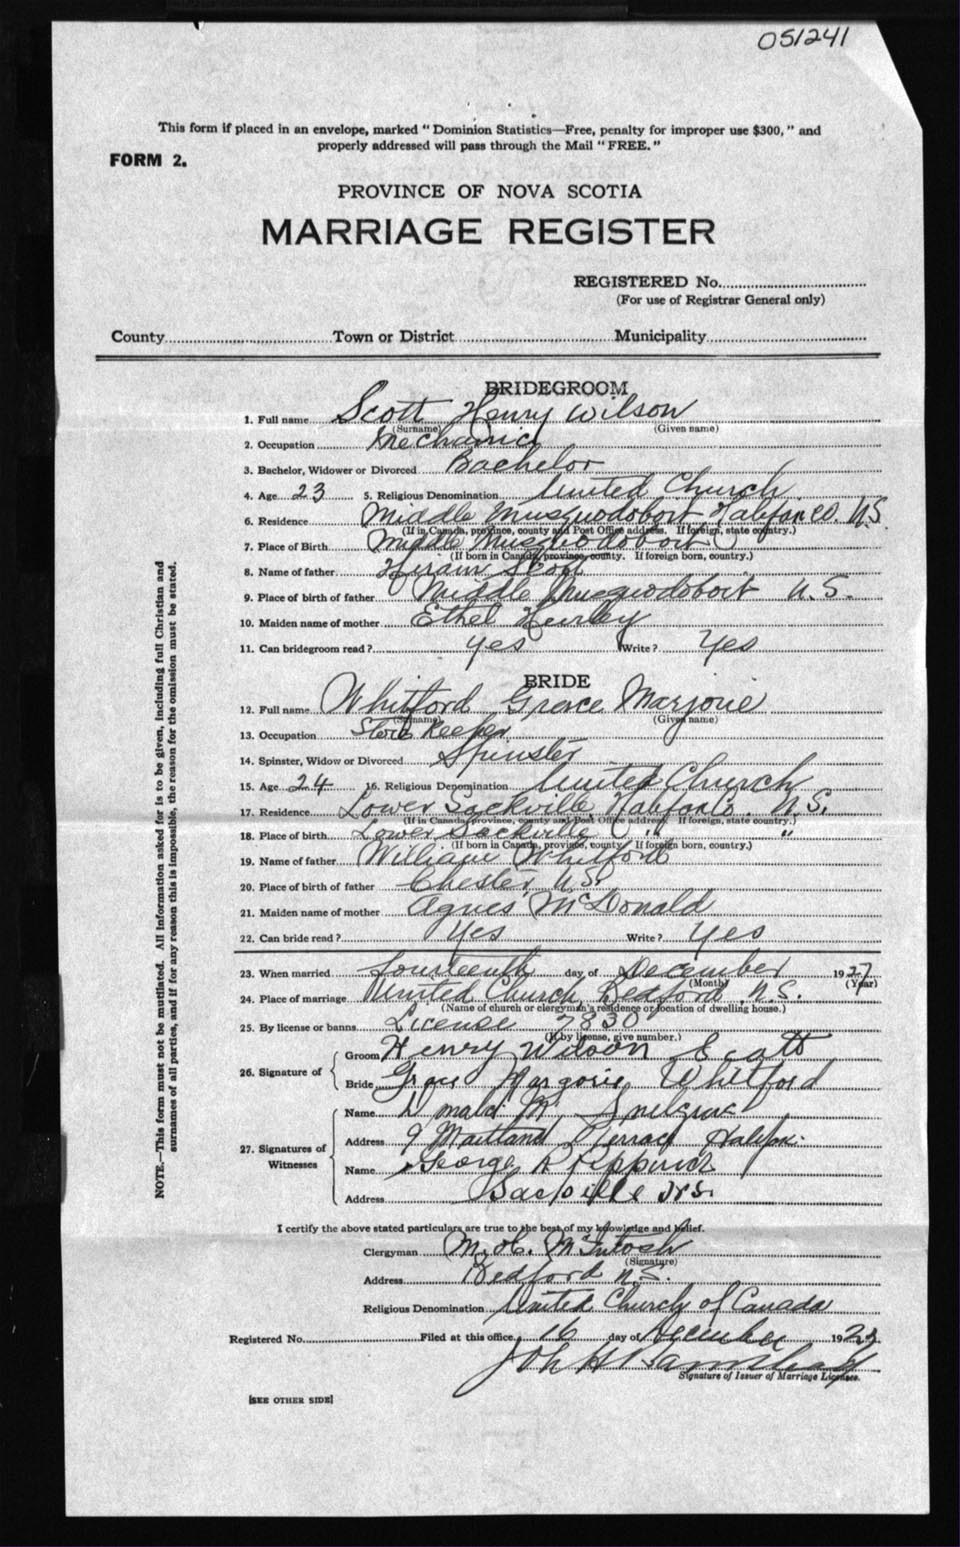 051241
This form if placed in an envelope, marked "Dominion Statistics—Free, penalty for improper use $300," and
properly addressed will pass through the Mail "FREE."
FORM 2.
PROVINCE OF NOVA SCOTIA
MARRIAGE REGISTER
REGISTERED No.
(For use of Registrar General only)
County Town or District Municipality
BRIDEGROOM
1. Full name Scott Henry Wilson
(Surname) (Given name)
2. Occupation Mechanic
3. Bachelor, Widower or Divorced Bachelor
4. Age 23 5. Religious Denomination United Church
6. Residence Middle Musquodoboit Halifax Co. N.S.
(If in Canada, province, county and Post Office address. If foreign, state country.)
7. Place of Birth Middle Musquodoboit
(If born in Canada, province, county. If foreign born, country.)
8. Name of father Hiram Scott
9. Place of birth of father Middle Musquodoboit N.S.
10. Maiden name of mother Ethel Hurley
11. Can bridegroom read? yes Write? Yes
BRIDE
12. Full name Whitford Grace Marjorie
(Surname) (Given name)
13. Occupation Store Keeper
14. Spinster, Widow or Divorced Spinster
15. Age 24 16. Religious Denomination United Church
17. Residence Lower Sackville Halifax Co. N.S.
(If in Canada, province, county and Post Office address. If foreign, state country.)
18. Place of birth Lower Sackville " "
(If born in Canada, province, county. If foreign born, country.)
19. Name of father William Whitford
20. Place of birth of father Chester, N.S.
21. Maiden name of mother Agnes McDonald
22. Can bride read? Yes Write? Yes
23. When married Fourteenth day of December 1927
(Month) (Year)
24. Place of marriage United Church, Bedford, N.S.
(Name of church or clergyman's residence or location of dwelling house.)
25. By license or banns License 7830
(If by license, give number.)
26. Signature of
Groom Henry Wilson Scott
Bride Grace Margorie Whitford
27. Signatures of Witnesses
Name Donald M.
Address 9 Maitland Terrace Halifax.
Name George R
Address Sackville N.S.
I certify the above stated particulars are true to the best of my knowledge and belief.
Clergyman McIntosh
(Signature)
Address Bedford N.S.
Religious Denomination United Church of Canada
Registered No. Filed at this office, 16 day of December 192
Signature of Issuer of Marriage Licenses.
[SEE OTHER SIDE]
NOTE.—This form must not be mutilated. All information asked for is to be given, including full Christian and
surnames of all parties, and if for any reason this is impossible, the reason for the omission must be stated.